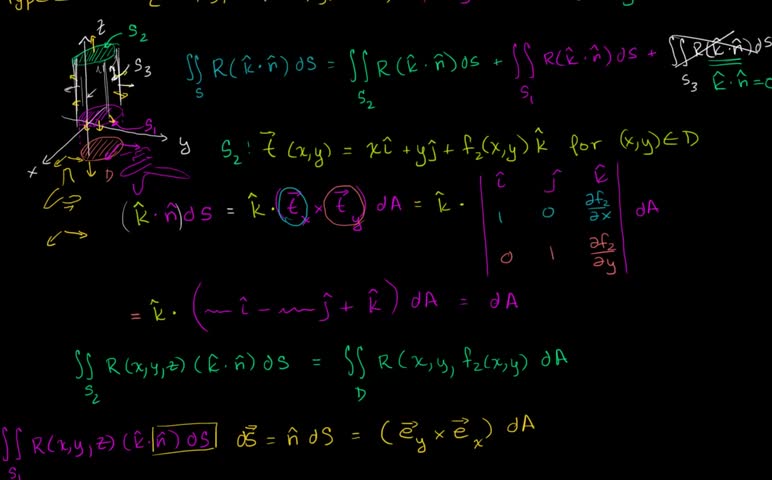 z
S₂
S₃
S₁
y
x
D
∬_S R(k̂·n̂)dS = ∬_S₂ R(k̂·n̂)dS + ∬_S₁ R(k̂·n̂)dS + ∬_S₃ R(k̂·n̂)dS
k̂·n̂=0
S₂: t⃗(x,y) = xî + yĵ + f₂(x,y)k̂ for (x,y)∈D
(k̂·n̂)dS = k̂·(t⃗ₓ × t⃗_y) dA = k̂· | î ĵ k̂ |
| 1 0 ∂f₂/∂x | dA
| 0 1 ∂f₂/∂y |
= k̂·( î - ĵ + k̂) dA = dA
∬_S₂ R(x,y,z)(k̂·n̂)dS = ∬_D R(x,y,f₂(x,y) dA
∬_S₁ R(x,y,z)(k̂·n̂)dS dS⃗ = n̂ dS = (e⃗_y × e⃗ₓ) dA